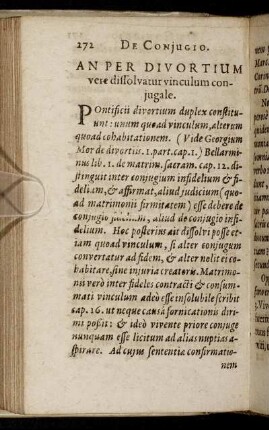 272 DE CONJUGIO.
AN PER DIVORTIUM
vere dissolvatur vinculum con-
jugale.
Pontificii divortium duplex constitu-
unt: unum quoad vinculum, alterum
quoad cohabitationem. (Vide Georgium
Mor de divortiis. 1. part. cap. 1.) Bellarmi-
nus lib. 1. de matrim. sacram. cap. 12. di-
stinguit inter conjugium infidelium & fi-
delium, & affirmat, aliud judicium (quo-
ad matrimonii firmitatem) esse debere de
conjugio fidelium, aliud de conjugio infi-
delium. Hoc posterius ait dissolvi posse et-
iam quoad vinculum, si alter conjugum
convertatur ad fidem, & alter nolit ei co-
habitare, sine injuria creatoris. Matrimo-
nii verò inter fideles contracti & consum-
mati vinculum adeò esse insolubile scribit
cap. 16. ut neque causa fornicationis diri-
mi possit: & ideò vivente priore conjuge
nunquam esse licitum ad alias nuptias a-
spirare. Ad cujus sententiæ confirmatio-
nem